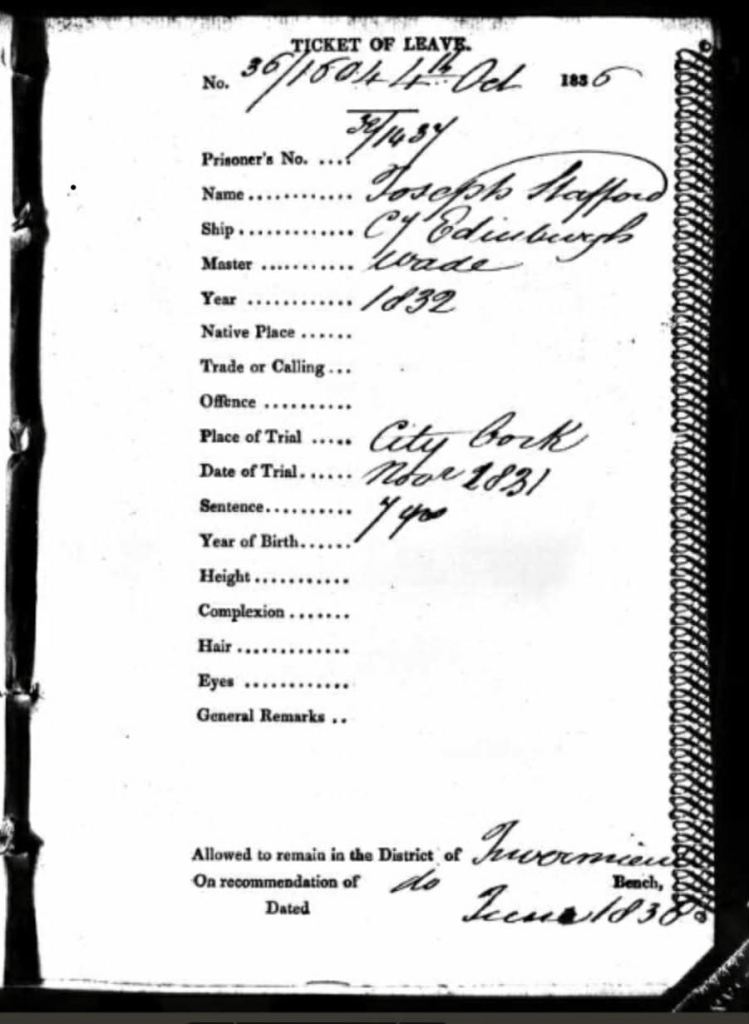 TICKET OF LEAVE.
No. 36/1604 4th Oct 1836
Prisoner's No. .... 32/1437
Name............ Joseph Stafford
Ship............. Cy Edinburgh
Master ........... Wade
Year ............ 1832
Native Place ......
Trade or Calling...
Offence ..........
Place of Trial ..... City Cork
Date of Trial...... Novr 1831
Sentence.......... 7 yrs
Year of Birth......
Height...........
Complexion .......
Hair .............
Eyes ............
General Remarks ..
Allowed to remain in the District of Invermien
On recommendation of do Bench,
Dated June 1836